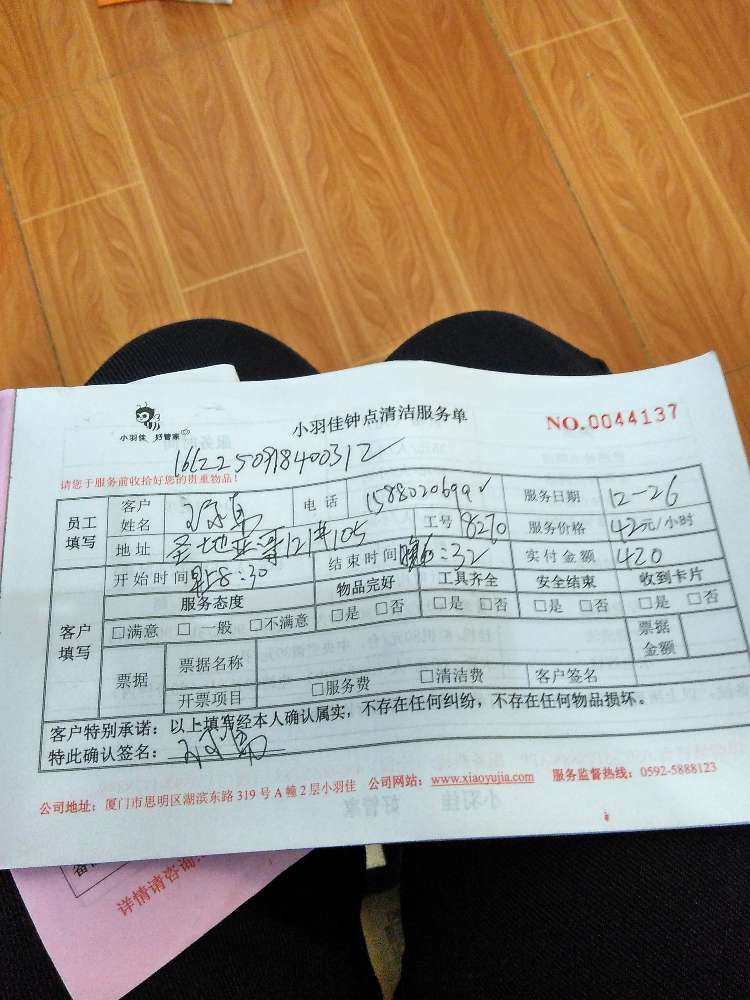 小羽佳 好管家
小羽佳钟点清洁服务单
NO.0044137
请您于服务前收拾好您的贵重物品!
员工填写 客户姓名 电话 1588020699 服务日期 12-26
地址 圣地亚哥121#105 工号 8270 服务价格 42元/小时
开始时间 8:30 结束时间 :32 实付金额 420
客户填写 服务态度 物品完好 工具齐全 安全结束 收到卡片
□满意 □一般 □不满意 □是 □否 □是 □否 □是 □否 □是 □否
票据 票据名称 票据金额
开票项目 □服务费 □清洁费 客户签名
客户特别承诺:以上填写经本人确认属实,不存在任何纠纷,不存在任何物品损坏。
特此确认签名:
公司地址:厦门市思明区湖滨东路319号A幢2层小羽佳 公司网站:www.xiaoyujia.com 服务监督热线:0592-5888123
详情请咨询: